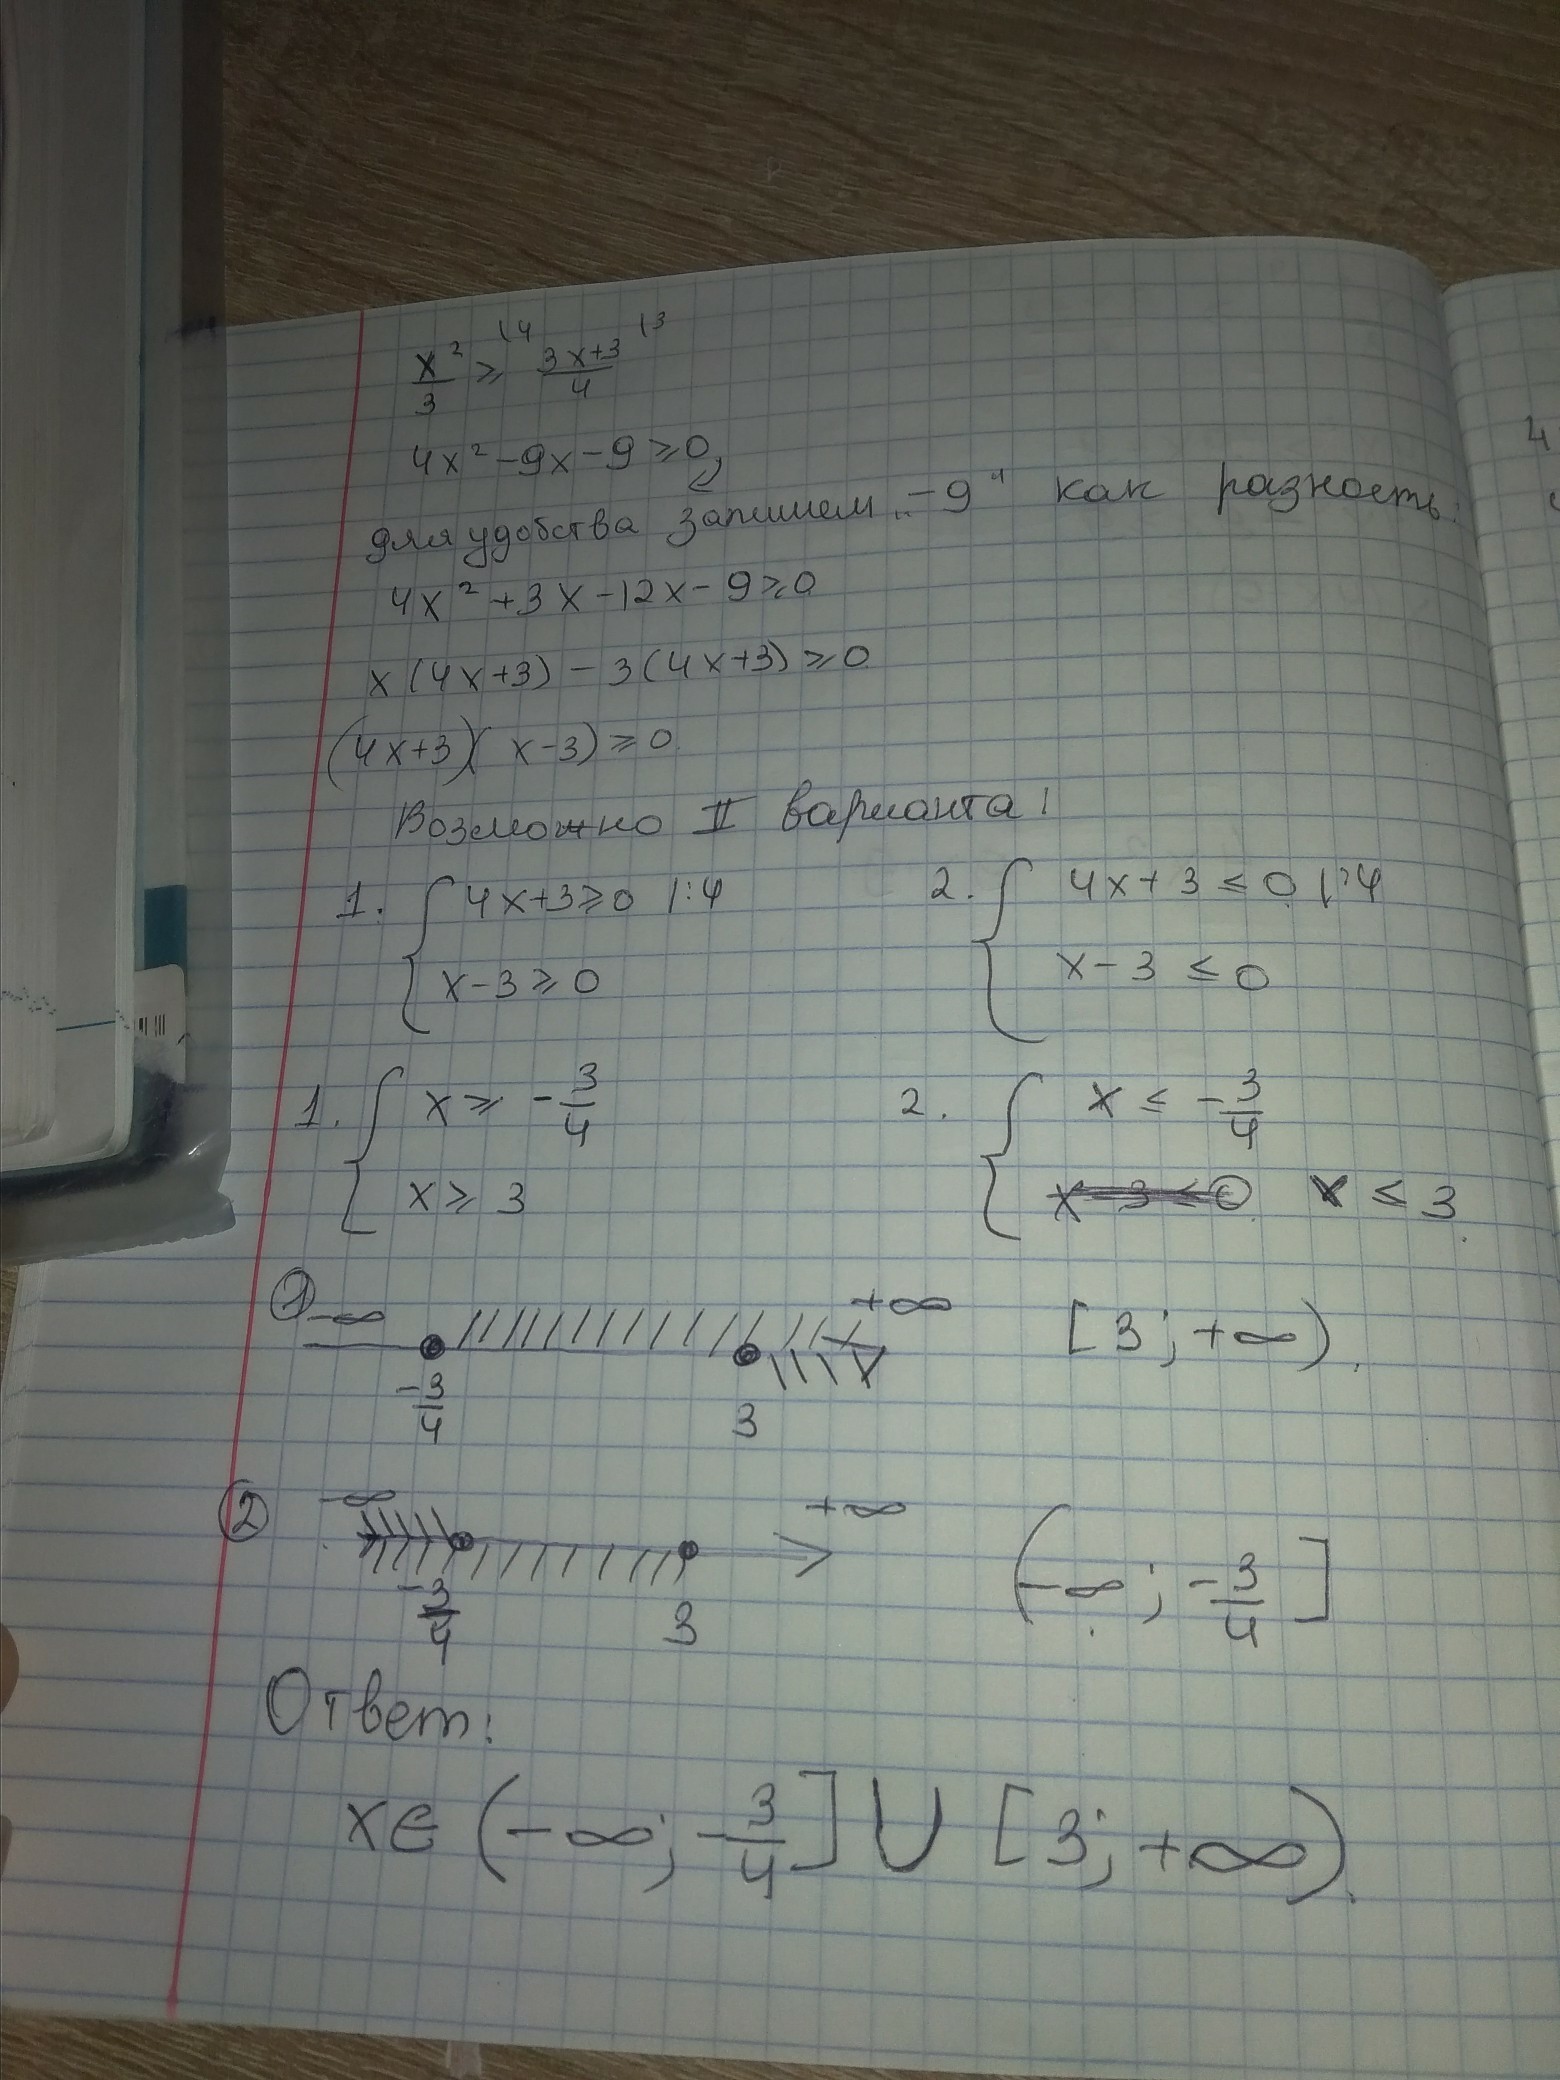 x²/3 ≥ |4 3x+3/4 |3
4x²-9x-9≥0,
для удобства запишем „-9“ как разность:
4x²+3x-12x-9≥0
x(4x+3)-3(4x+3)≥0
(4x+3)(x-3)≥0
Возможно II варианта:
1. { 4x+3≥0 |:4 2. { 4x+3≤0 |:4
x-3≥0 x-3≤0
1. { x≥-3/4 2. { x≤-3/4
x≥3 x-3≤0 x≤3.
① -∞ +∞ [3;+∞).
-3/4 3
② -∞ +∞ (-∞;-3/4]
-3/4 3
Ответ:
x∈(-∞;-3/4]∪[3;+∞).